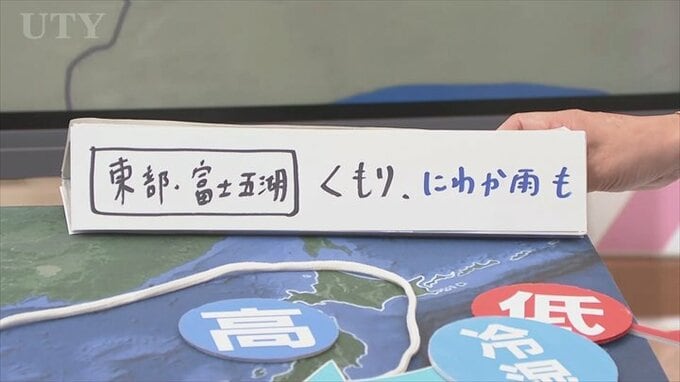 UTY
東部・富士五湖 くもり、にわか雨も
高
低
冷源